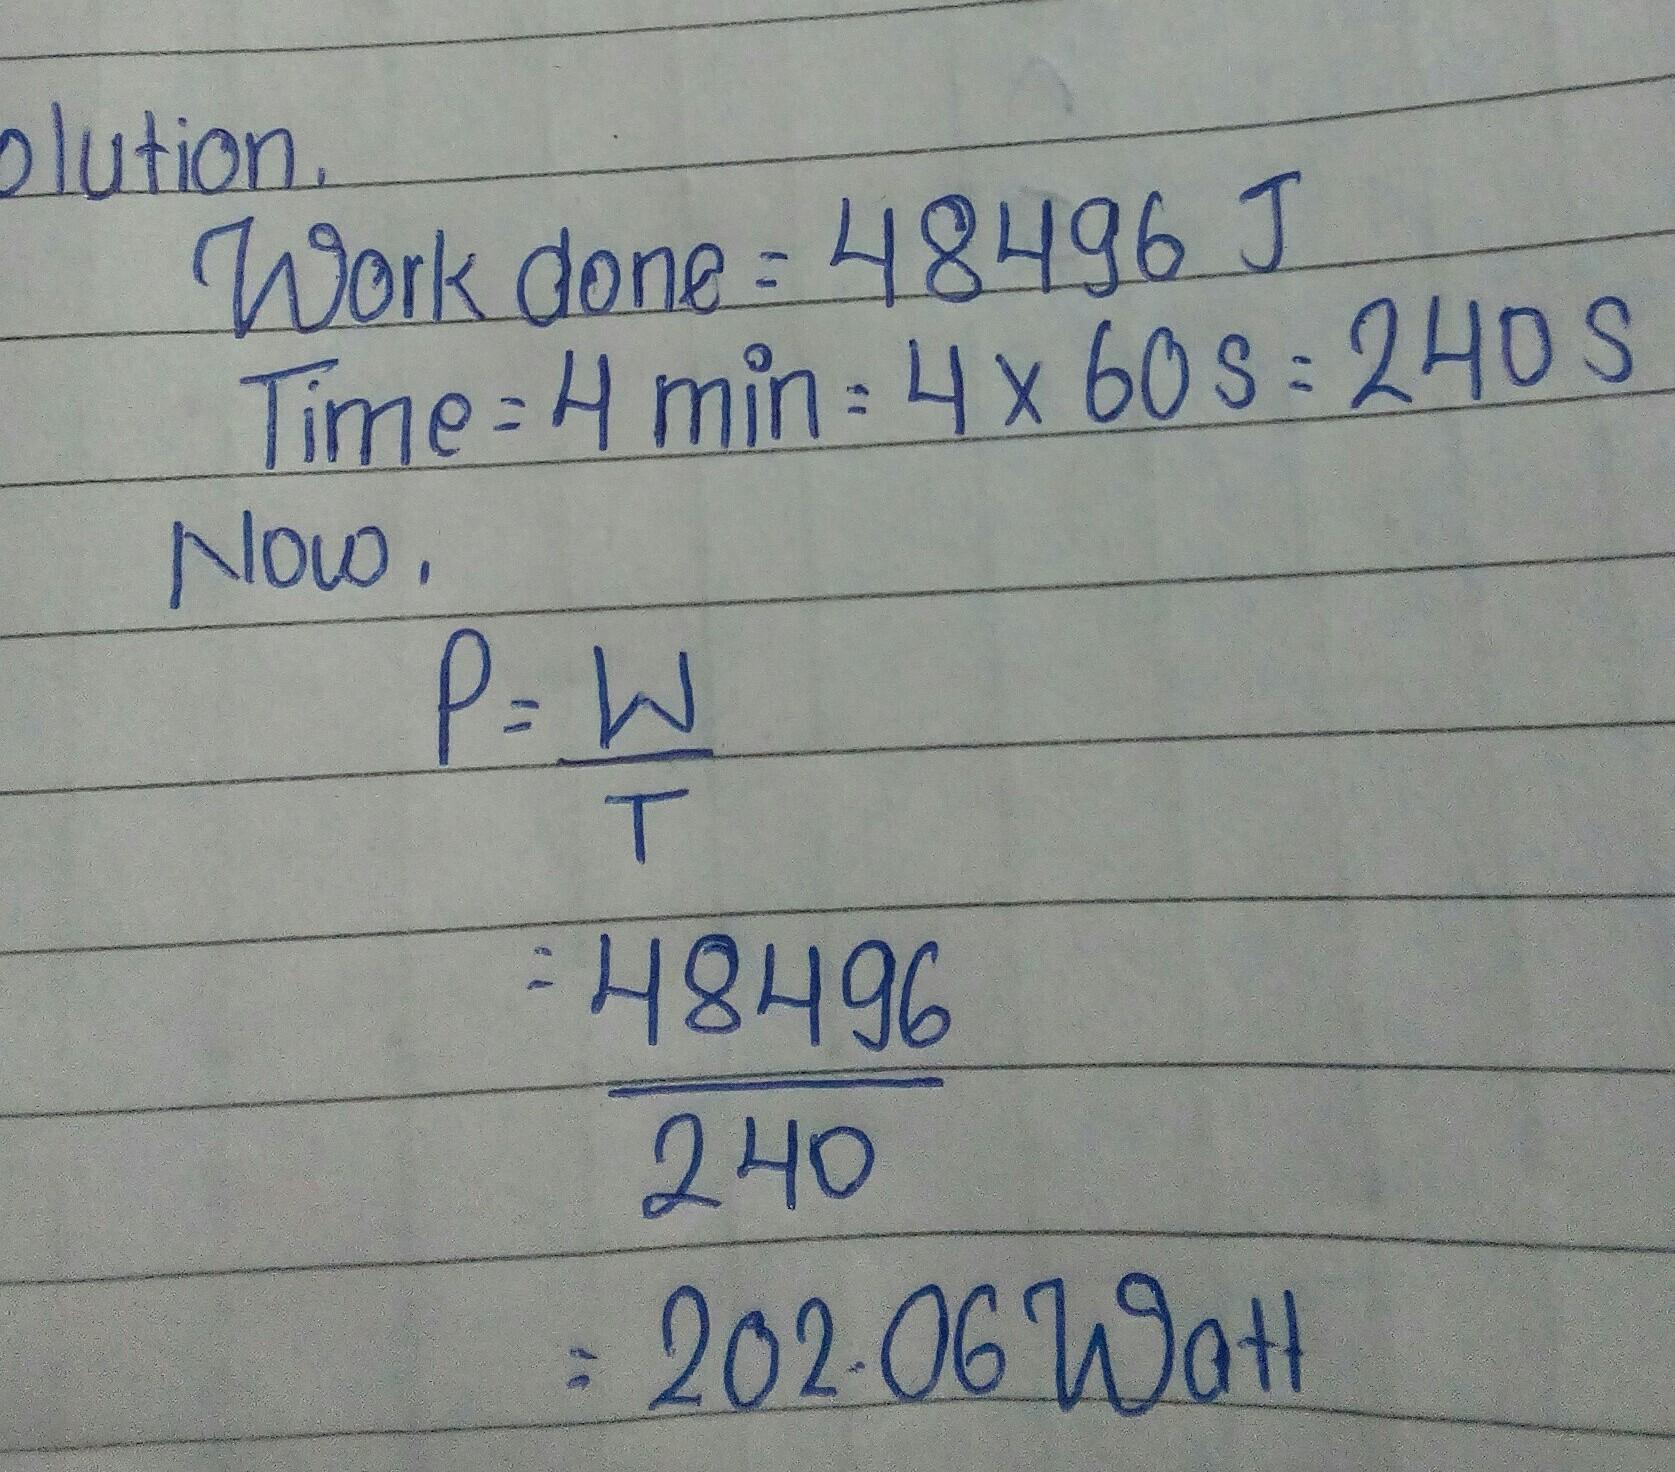 olution.
Work done = 48496 J
Time = 4 min = 4 x 60 s = 240 s
Now,
P = W
T
= 48496
240
= 202.06 Watt